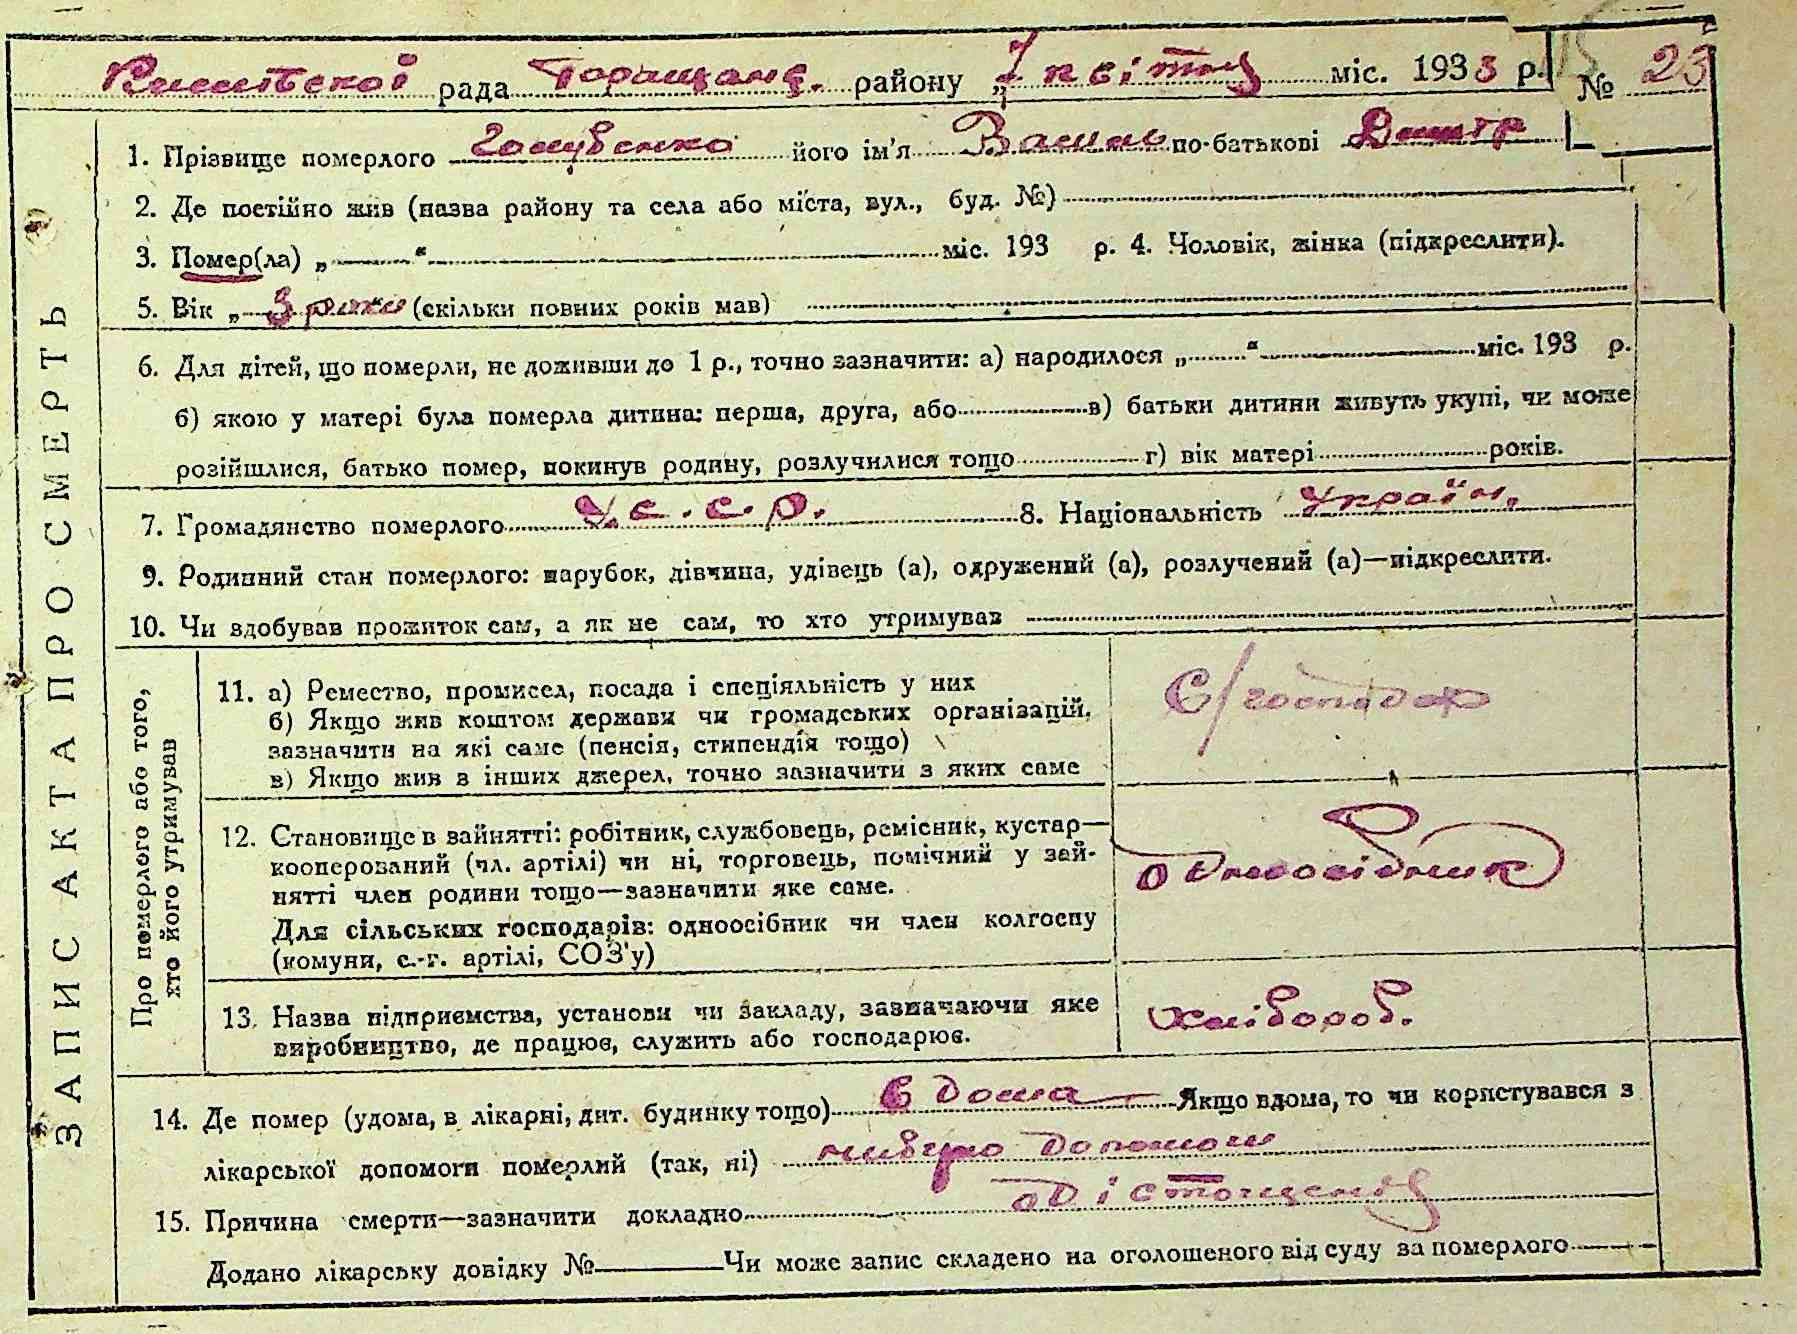 рада Таращанс. району „7 квітня міс. 1933 р. № 23
1. Прізвище померлого Голубенко його ім'я Василь по-батькові Дмитр
2. Де постійно жив (назва району та села або міста, вул., буд. №)
3. Помер(ла) „ “ міс. 193 р. 4. Чоловік, жінка (підкреслити).
5. Вік „ 3 роки (скільки повних років мав)
6. Для дітей, що померли, не доживши до 1 р., точно зазначити: а) народилося „ “ міс. 193 р.
б) якою у матері була померла дитина: перша, друга, або в) батьки дитини живуть укупі, чи може
розійшлися, батько помер, покинув родину, розлучилися тощо г) вік матері років.
7. Громадянство померлого У.С.С.Р. 8. Національність Україн.
9. Родинний стан померлого: парубок, дівчина, удівець (а), одружений (а), розлучений (а)—підкреслити.
10. Чи здобував прожиток сам, а як не сам, то хто утримував
ЗАПИС АКТА ПРО СМЕРТЬ
Про померлого або того,
хто його утримував
11. а) Ремество, промисел, посада і спеціяльність у них
б) Якщо жив коштом держави чи громадських організацій,
зазначити на які саме (пенсія, стипендія тощо)
в) Якщо жив з інших джерел, точно зазначити з яких саме
С/господар
12. Становище в вайнятті: робітник, службовець, ремісник, кустар—
кооперований (чл. артілі) чи ні, торговець, помічний у зай-
нятті член родини тощо—зазначити яке саме.
Для сільських господарів: одноосібник чи член колгоспу
(комуни, с.-г. артілі, СОЗ'у)
одноосібник
13. Назва підприємства, установи чи закладу, зазначаючи яке
виробництво, де працює, служить або господарює.
Хлібороб.
14. Де помер (удома, в лікарні, дит. будинку тощо) в дома Якщо вдома, то чи користувався з
лікарської допомоги померлий (так, ні) допомоги
15. Причина смерти—зазначити докладно од істощенія
Додано лікарську довідку № Чи може запис складено на оголошеного від суду за померлого